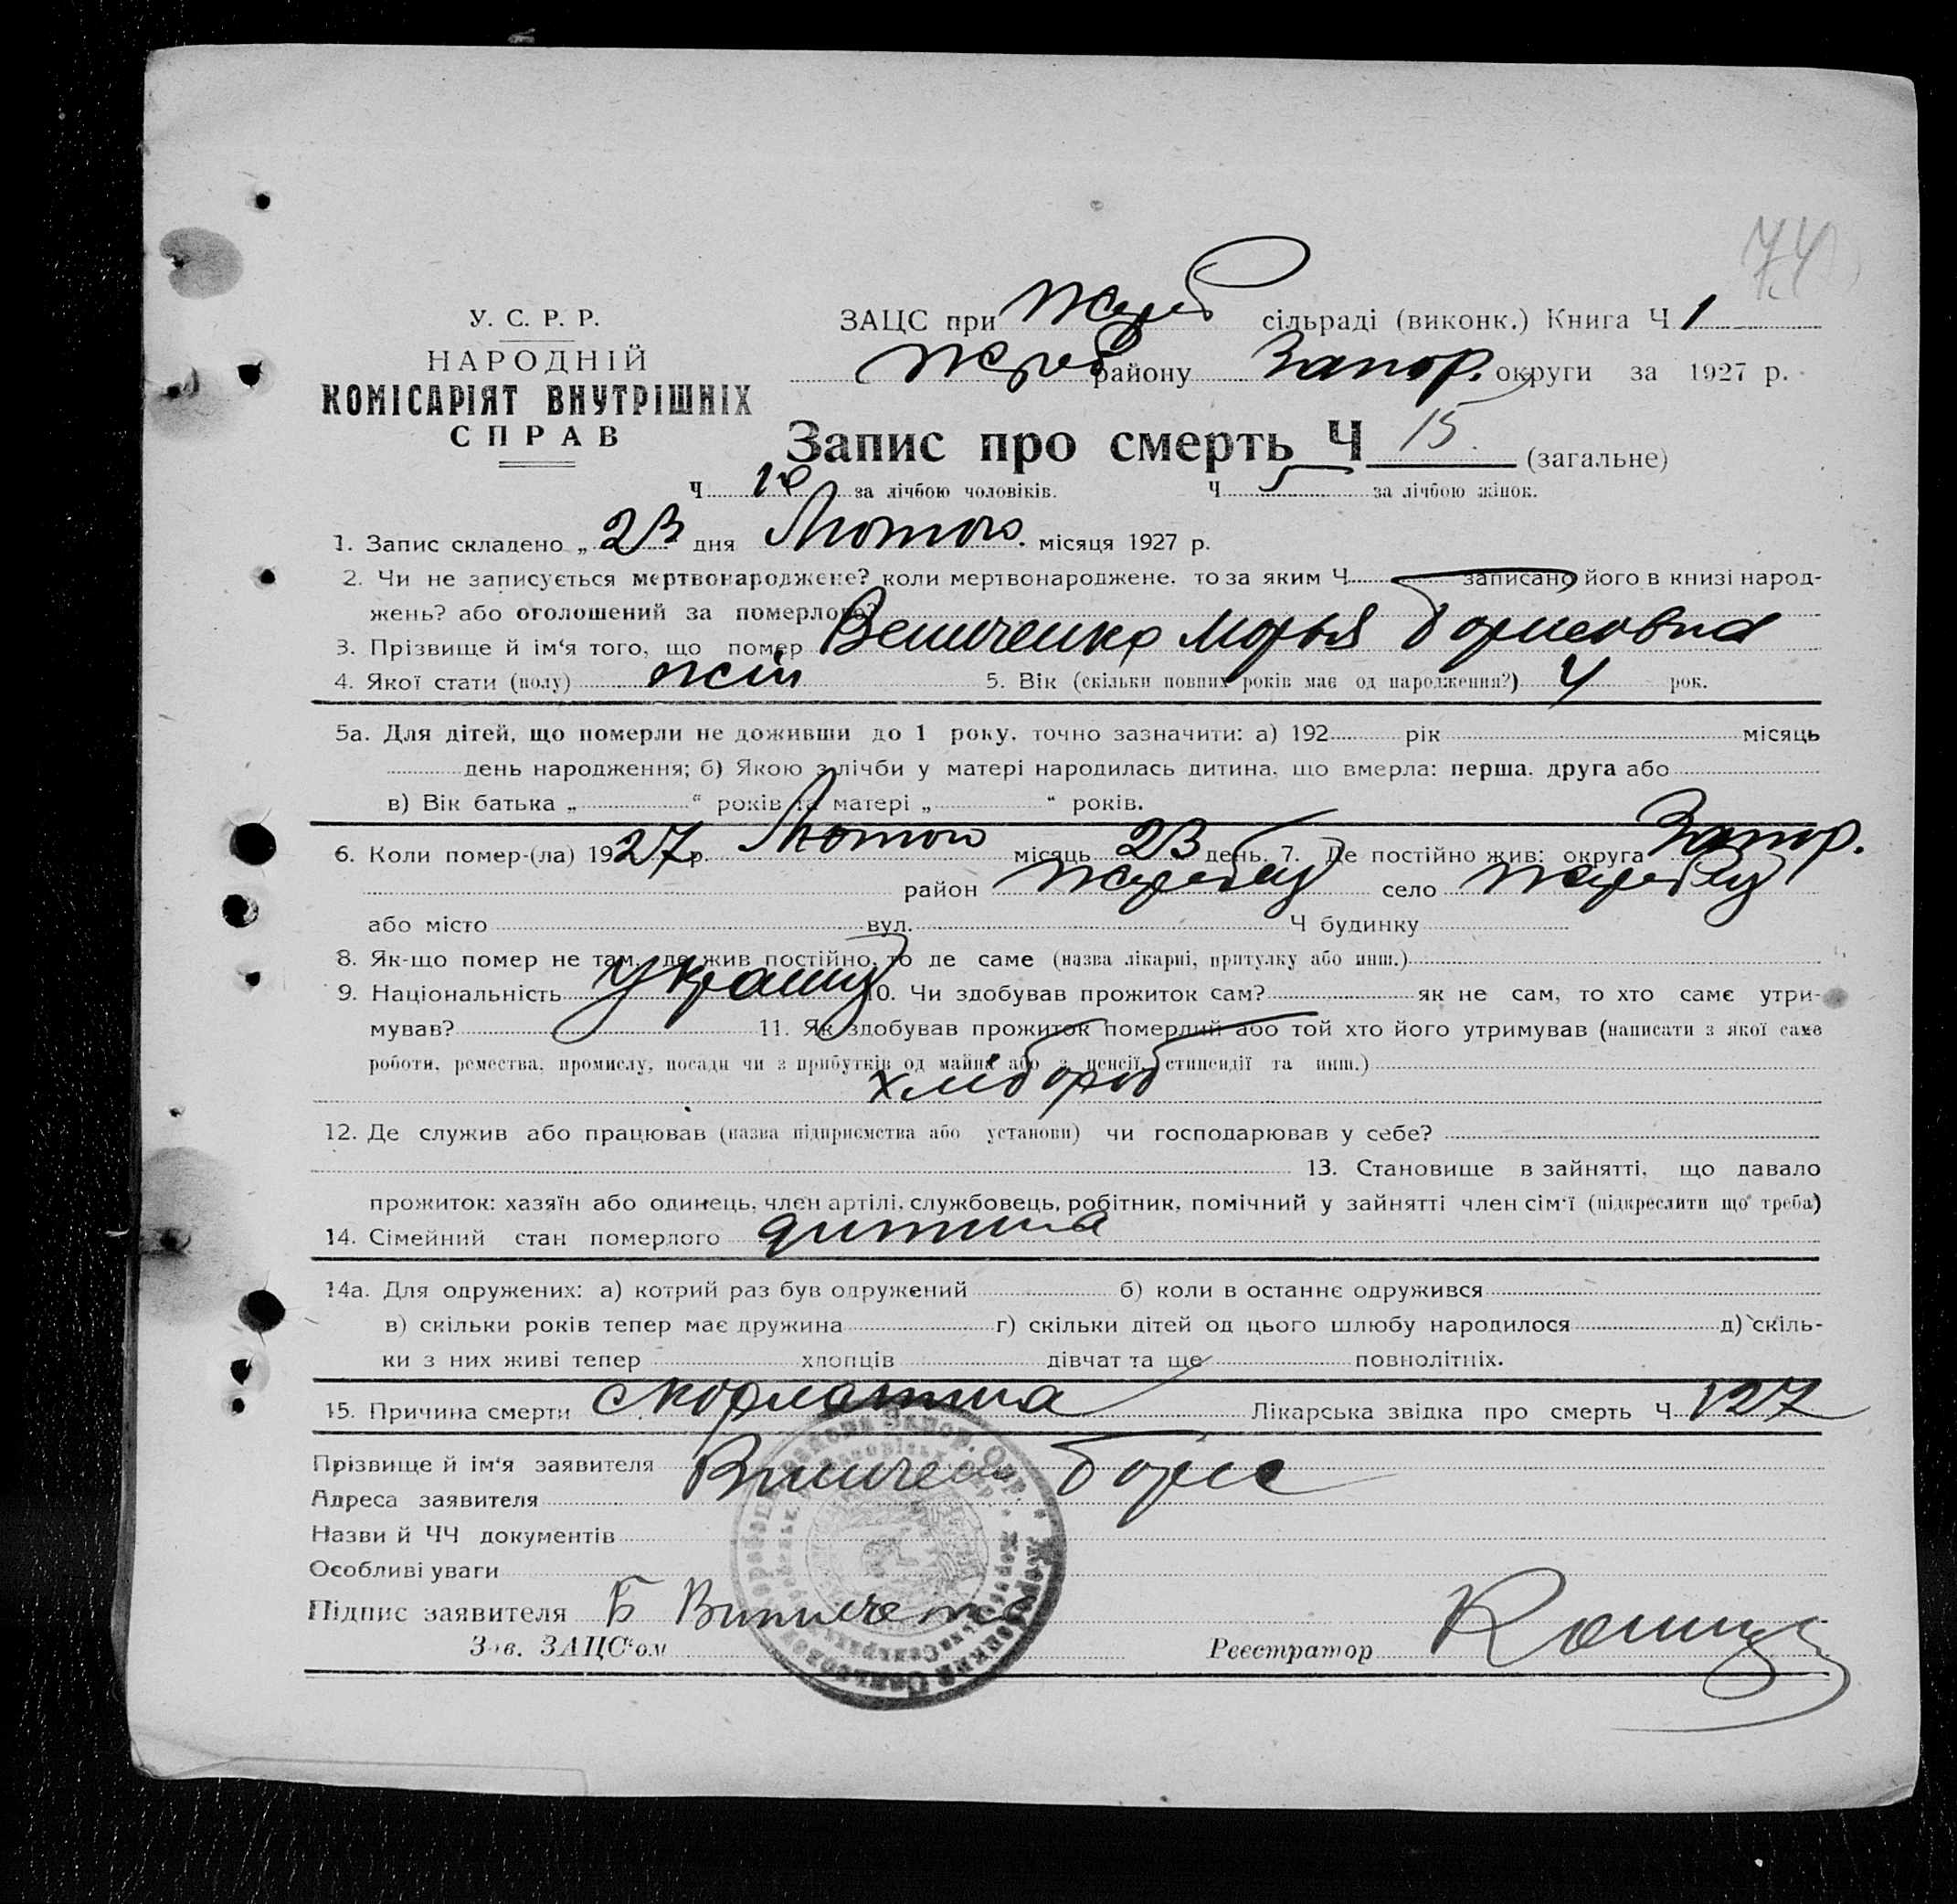 74
У. С. Р. Р.
НАРОДНІЙ
КОМІСАРІЯТ ВНУТРІШНІХ
СПРАВ
ЗАЦС при Жереб сільраді (виконк.) Книга Ч 1
Жереб району Запор. округи за 1927 р.
Запис про смерть Ч 15. (загальне)
Ч 10 за лічбою чоловіків. Ч 5 за лічбою жінок.
1. Запис складено „ 23 дня Лютого. місяця 1927 р.
2. Чи не записується мертвонароджене? коли мертвонароджене, то за яким Ч записано його в книзі народ-
жень? або оголошений за померлого?
3. Прізвище й ім'я того, що помер Марья Борисовна
4. Якої стати (полу) жін 5. Вік (скільки повних років має од народження?) 4 рок.
5а. Для дітей, що померли не доживши до 1 року, точно зазначити: а) 192 рік місяць
день народження; б) Якою з лічби у матері народилась дитина, що вмерла: перша, друга або
в) Вік батька „ “ років та матері „ “ років.
6. Коли помер-(ла) 1927 р. Лютого місяць 23 день. 7. Де постійно жив: округа Запор.
район Жеребец село Жеребец
або місто вул. Ч будинку
8. Як-що помер не там, де жив постійно, то де саме (назва лікарні, притулку або инш.)
9. Національність 10. Чи здобував прожиток сам? як не сам, то хто саме утри-
мував? 11. Як здобував прожиток померлий або той хто його утримував (написати з якої саме
роботи, ремества, промислу, посади чи з прибутків од майна або з пенсії, стипендії та инш.)
хлібороб
12. Де служив або працював (назва підприємства або установи) чи господарював у себе?
13. Становище в зайнятті, що давало
прожиток: хазяїн або одинець, член артілі, службовець, робітник, помічний у зайнятті член сім'ї (підкреслити що треба)
14. Сімейний стан померлого дитина
14а. Для одружених: а) котрий раз був одружений б) коли в останнє одружився
в) скільки років тепер має дружина г) скільки дітей од цього шлюбу народилося д) скіль-
ки з них живі тепер хлопців дівчат та ще повнолітніх.
15. Причина смерти скорлатина Лікарська звідка про смерть Ч 127
Прізвище й ім'я заявителя Борис
Адреса заявителя
Назви й ЧЧ документів
Особливі уваги
Підпис заявителя Б
Зав. ЗАЦС'ом Реєстратор